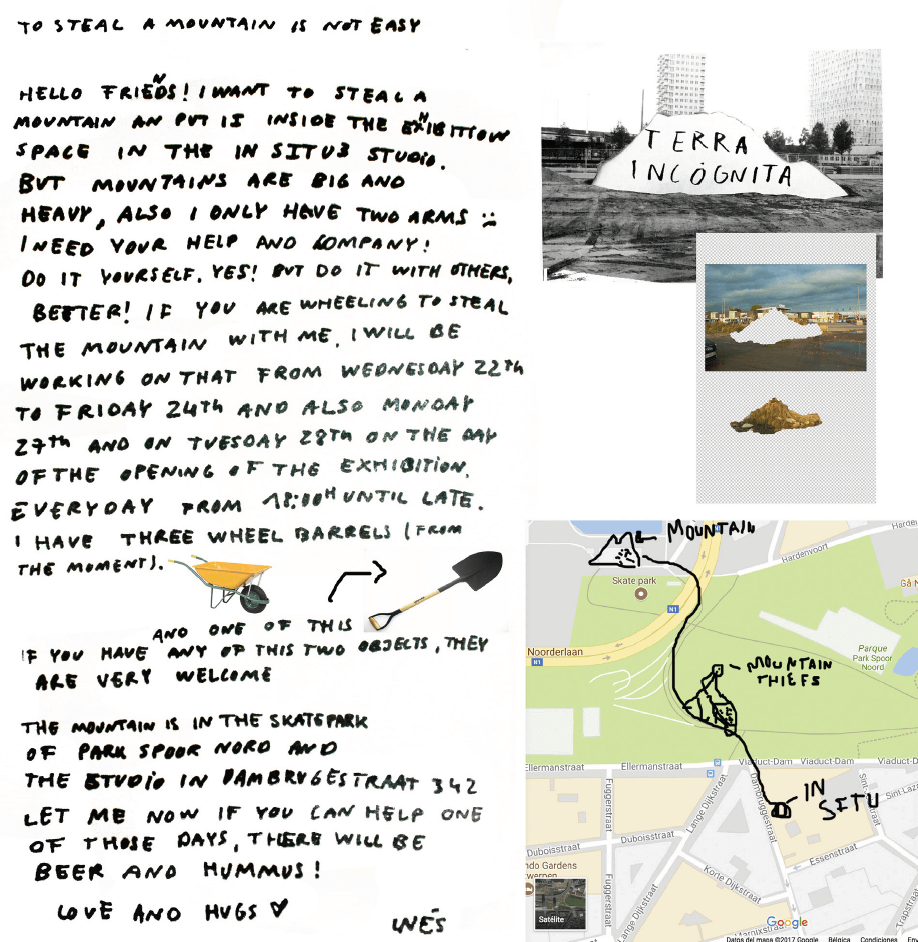 TO STEAL A MOUNTAIN IS NOT EASY
HELLO FRIENDS! I WANT TO STEAL A
MOUNTAIN AN PUT IS INSIDE THE EXHIBITION
SPACE IN THE IN SITU3 STUDIO.
BUT MOUNTAINS ARE BIG AND
HEAVY, ALSO I ONLY HAVE TWO ARMS :(
I NEED YOUR HELP AND COMPANY!
DO IT YOURSELF. YES! BUT DO IT WITH OTHERS,
BETTER! IF YOU ARE WHEELING TO STEAL
THE MOUNTAIN WITH ME, I WILL BE
WORKING ON THAT FROM WEDNESDAY 22TH
TO FRIDAY 24TH AND ALSO MONDAY
27TH AND ON TUESDAY 28TH ON THE DAY
OF THE OPENING OF THE EXHIBITION.
EVERYDAY FROM 18:00H UNTIL LATE.
I HAVE THREE WHEEL BARRELS (FROM
THE MOMENT).
AND ONE OF THIS
IF YOU HAVE ANY OF THIS TWO OBJECTS, THEY
ARE VERY WELCOME
THE MOUNTAIN IS IN THE SKATEPARK
OF PARK SPOOR NORD AND
THE STUDIO IN DAMBRUGESTRAAT 342
LET ME NOW IF YOU CAN HELP ONE
OF THOSE DAYS, THERE WILL BE
BEER AND HUMMUS!
LOVE AND HUGS ♥
INÉS
TERRA
INCÓGNITA
MOUNTAIN
Hardenvoort
Harden
Skate park
N1
N1
N1
Gå N
Noorderlaan
Parque
Park Spoor
Noord
MOUNTAIN
THIEFS
Ellermanstraat
Ellermanstraat
Viaduct-Dam
Viaduct-Dam
Viaduct-D
Fuggerstraat
Lange Dijkstraat
Dambruggestraat
Sint-Laz
IN
SITU
Duboisstraat
Duboisstraat
Essenstraat
ndo Gardens
twerpen
Korte Dijkstraat
Fuggerstraat
Trapstraat
Satélite
Google
Marnixstraat
Datos del mapa ©2017 Google Bélgica Condiciones Env